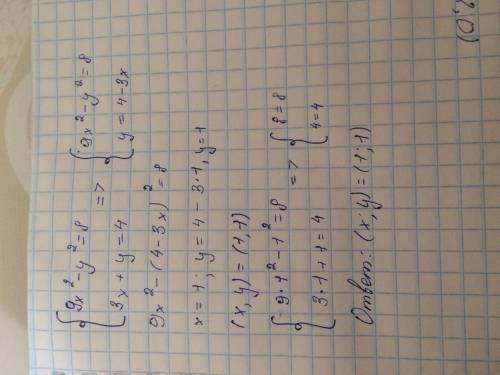 { 9x² - y² = 8
3x + y = 4 => { 9x² - y² = 8
y = 4 - 3x
9x² - (4 - 3x)² = 8
x = 1; y = 4 - 3·1, y = 1
(x, y) = (1, 1)
{ 9·1² - 1² = 8
3·1 + 1 = 4 => { 8 = 8
4 = 4
Ответ: (x; y) = (1; 1)